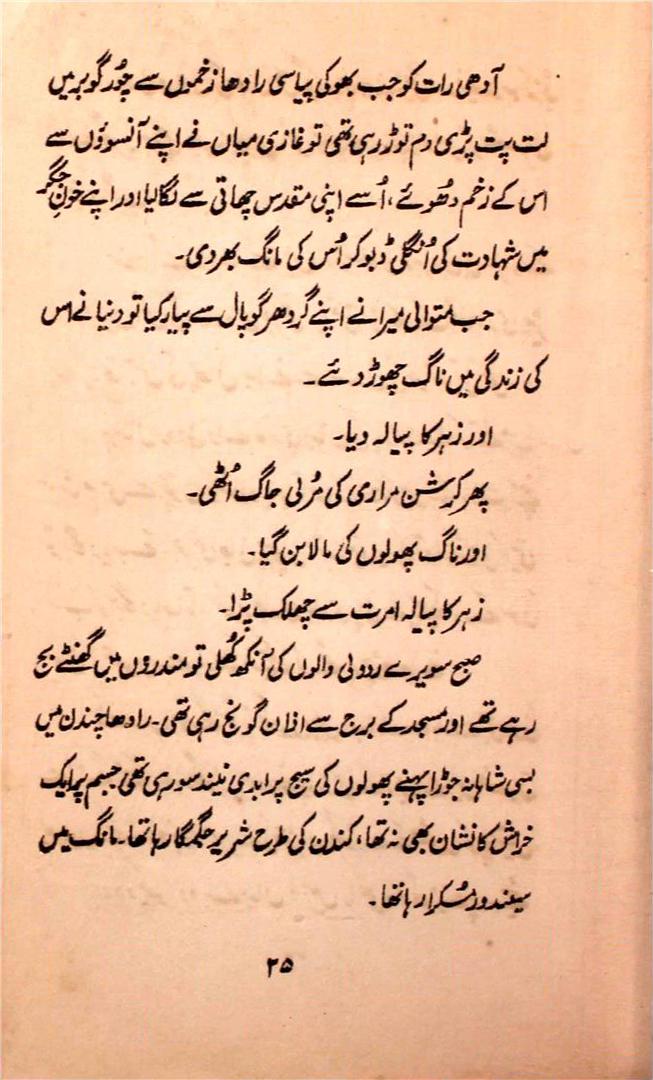 آدھی رات کو جب بھوکی پیاسی رادھا زخموں سے چُور گوبر میں
لت پت پڑی دم توڑ رہی تھی تو غازی میاں نے اپنے آنسوؤں سے
اس کے زخم دھُوئے، اُسے اپنی مقدس چھاتی سے لگالیا اور اپنے خونِ جگر
میں شہادت کی اُنگلی ڈبو کر اُس کی مانگ بھر دی۔
جب متوالی میرا نے اپنے گردھر گوپال سے پیار کیا تو دنیا نے اس
کی زندگی میں ناگ چھوڑ دئے۔
اور زہر کا پیالہ دیا۔
پھر کرشن مراری کی مُرلی جاگ اُٹھی۔
اور ناگ پھولوں کی مالا بن گیا۔
زہر کا پیالہ امرت سے چھلک پڑا۔
صبح سویرے ردولی والوں کی آنکھ کھُلی تو مندروں میں گھنٹے بج
رہے تھے اور مسجد کے برج سے اذان گونج رہی تھی۔ رادھا چندن میں
بسی شاہانہ جوڑا پہنے پھولوں کی سیج پر ابدی نیند سو رہی تھی جسم پر ایک
خراش کا نشان بھی نہ تھا، کندن کی طرح شریر جگمگا رہا تھا۔ مانگ میں
سیندور مُسکرا رہا تھا۔
۲۵